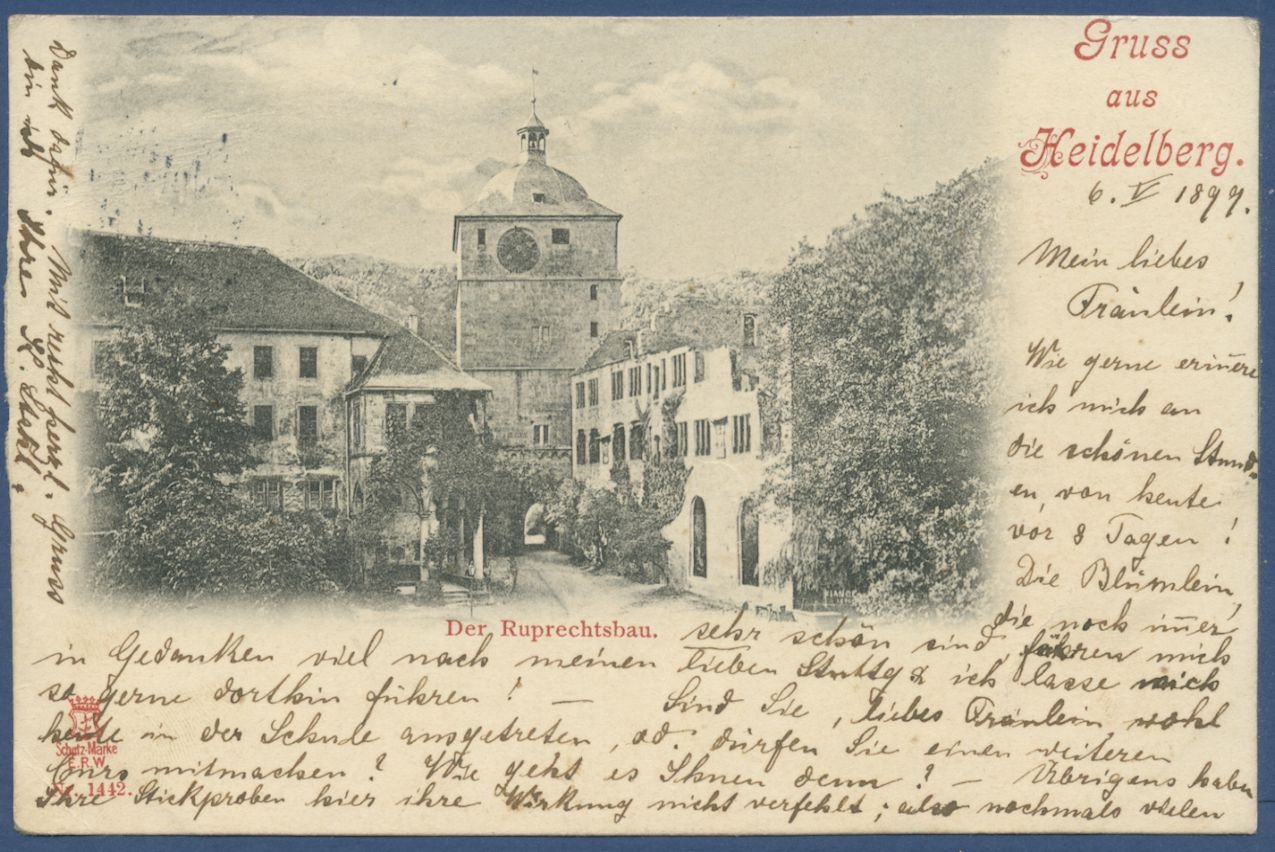 Gruss
aus
Heidelberg.
6. V 1899.
Mein liebes
Fräulein!
Wie gerne erin̄ere
ich mich an
die schönen Stund-
en, von heute
vor 8 Tagen!
Die Blümlein,
die noch im̄er
sehr schön sind, führen mich
Der Ruprechtsbau.
in Gedanken viel nach meinen lieben Stuttg & ich lasse mich
so gerne dorthin führen! — Sind Sie, liebes Fräulein, wohl
heute in der Schule ausgetreten, od. dürfen Sie einen weiteren
Curs mitmachen? Wie geht es Ihnen denn? — Übrigens haben
Ihre Stickproben hier ihre Wirkung nicht verfehlt; also nochmals vielen
Dank dafür. Mit recht herzl. Gruss
bin ich Ihre
Schutz-Marke
E.R.W
No. 1442.